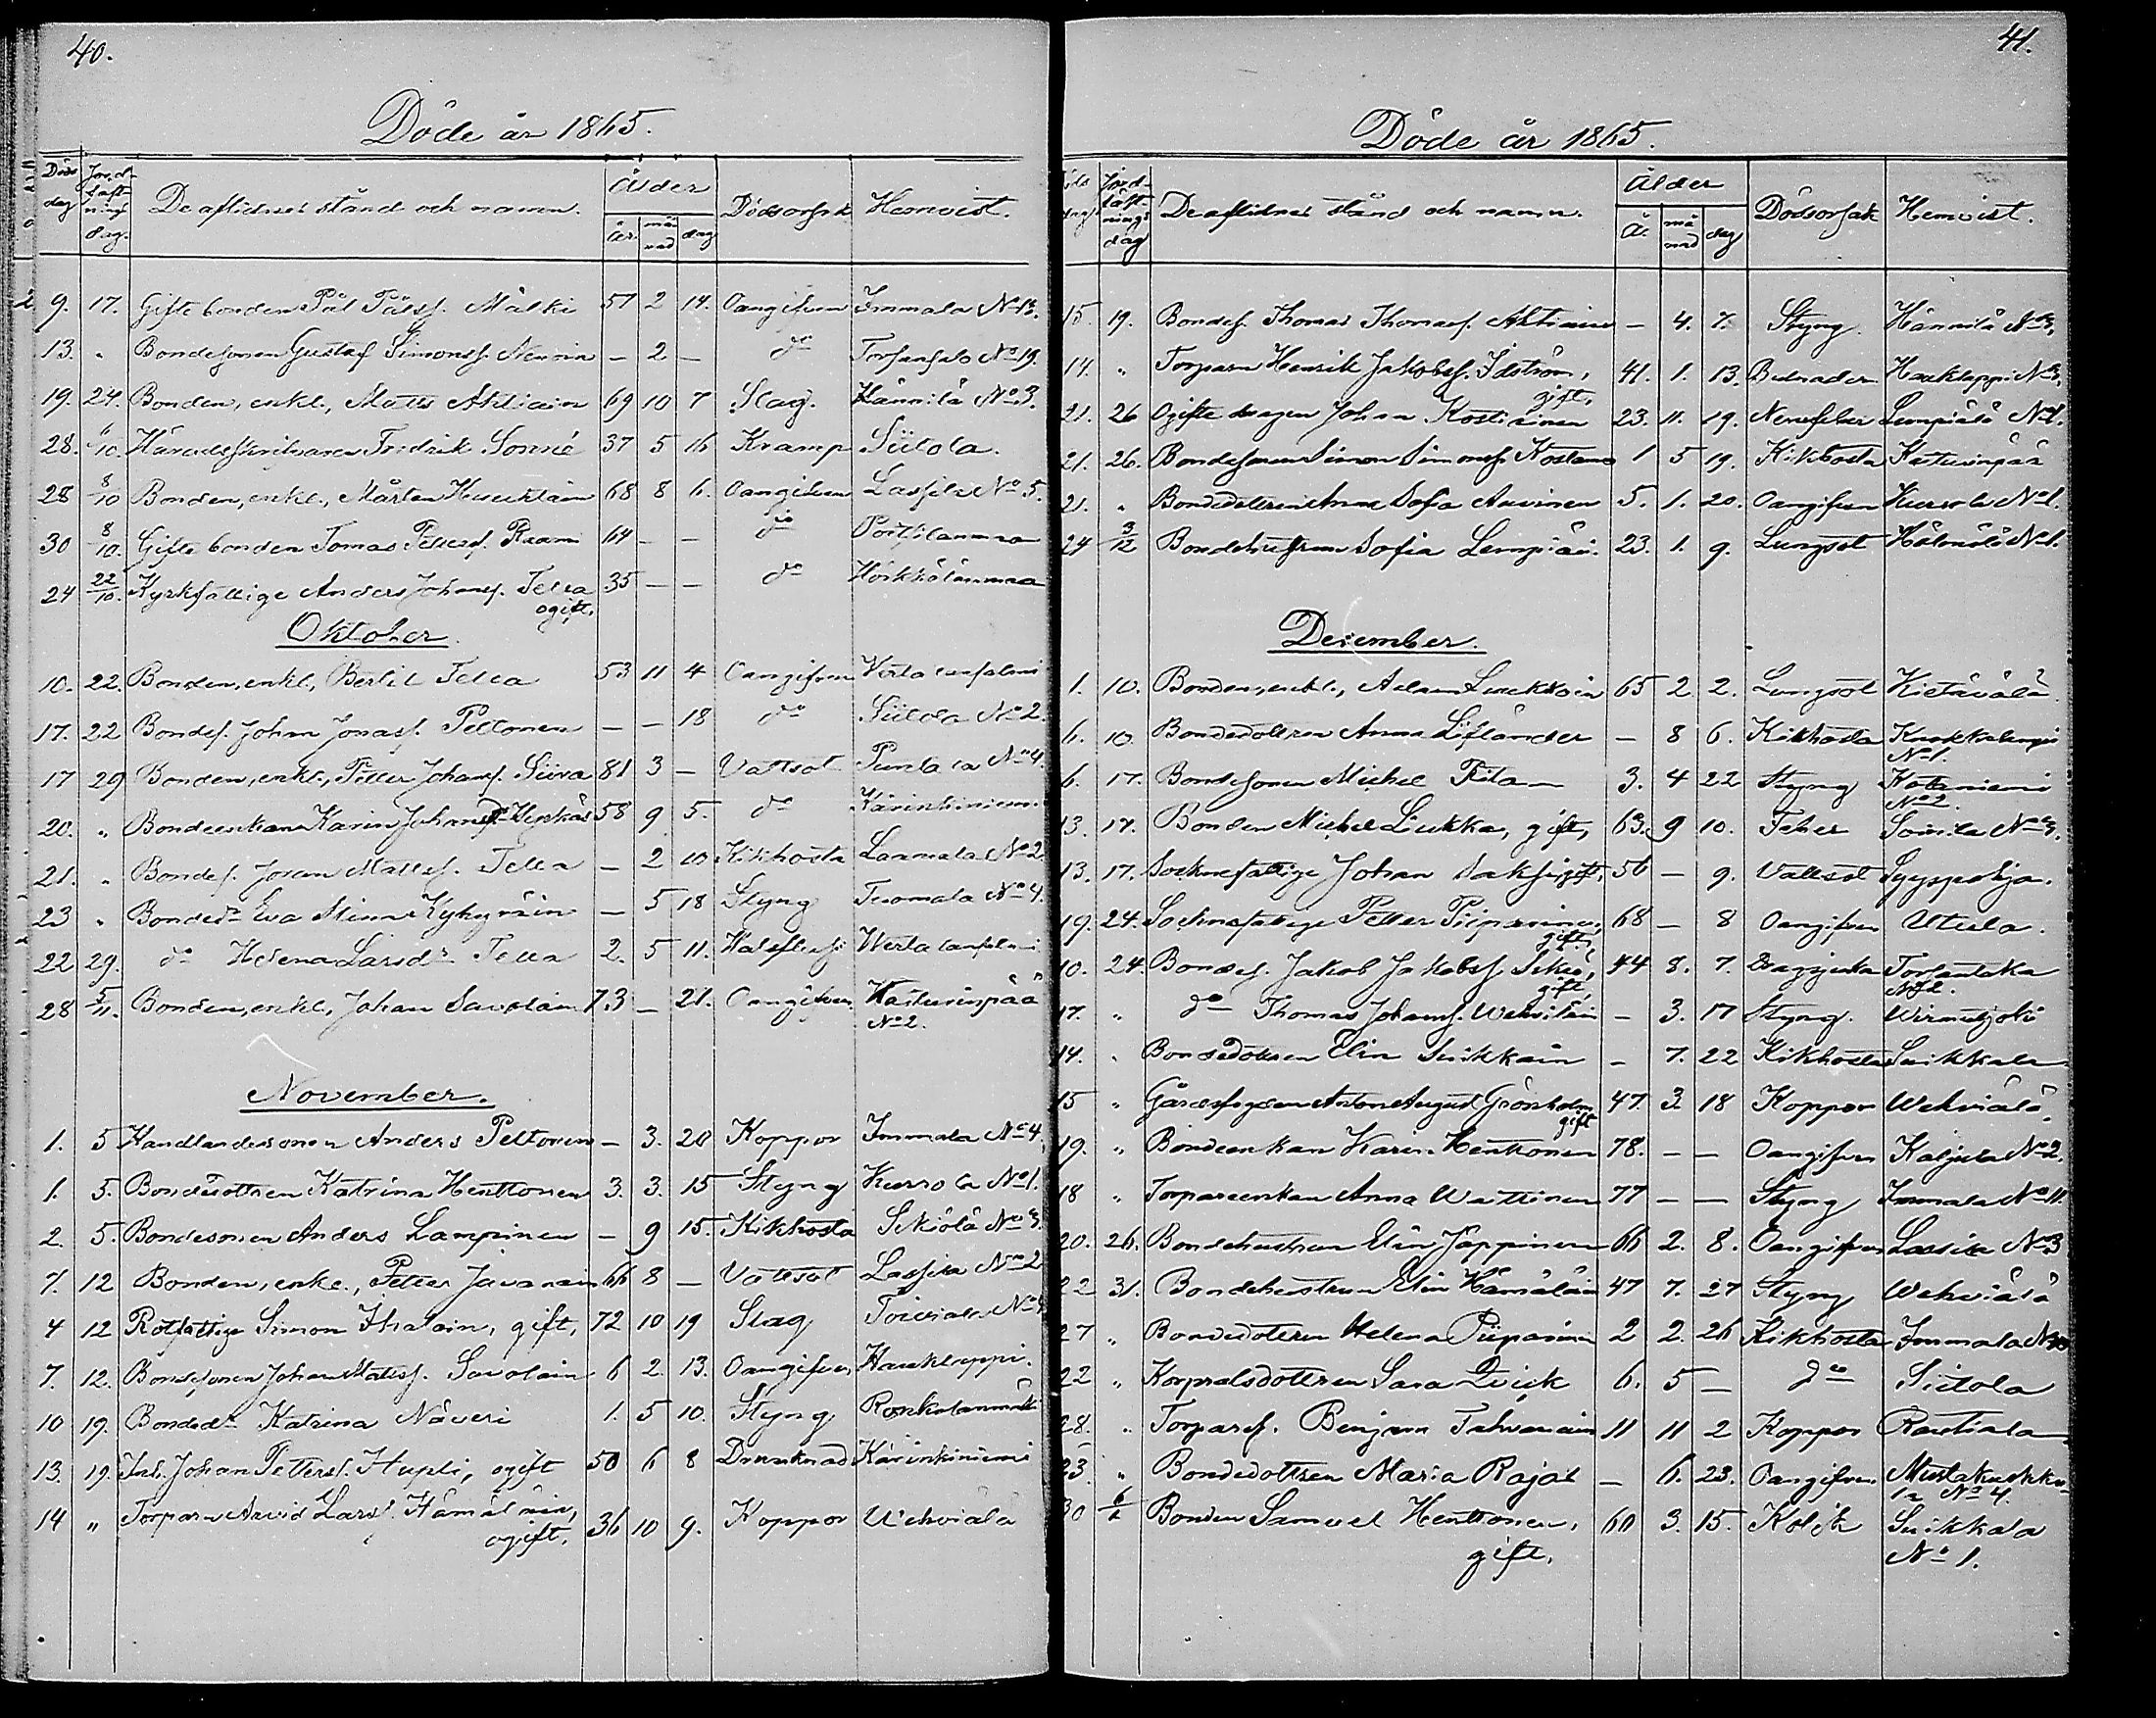 40.
Döde år 1865.
Döds dag Jordfästnings dag. De aflidnes stånd och namn. Ålder år månad dag Dödsorsak Hemvist.
9. 17. Gifte bonden Pål Pålsf. Mälki 57 2 14. Oangifven Immala No 13.
13. " Bondesonen Gustaf Simonsf. Neuvin — 2 — do Torsansalo No 19.
19. 24. Bonden, enkl., Matts Ahtiain 69 10 7 Slag. Hännilä No 3.
28. /10. Häradsskrifvaren Fredrik Sonné 37 5 16 Kramp Siitola.
28 8/10 Bonden, enkl., Mårten Huuhtain 68 8 6. Oangifven Lassila No 5.
30 8/10. Gifte bonden Tomas Pettersf. Raami 64 — — do
24 22/10. Kyrkfattige Anders Johansf. Tella 35 — — do
ogift,
Oktober.
10. 22. Bonden, enkl., Bertil Tella 53 11 4 Oangifven
17. 22 Bondes. Johan Jonasf. Peltonen — — 18 do Siitola No 2.
17 29 Bonden, enkl., Petter Johansf. Siiva 81 3 — Vattsot Puntala No 4
20. " Bondeenkan Karin Johansdr Hyrkäs 58 9 5. do Kärinkiniemi.
21. " Bondes. Johan Mattsf. Tella — 2 10 Kikhosta Lammala No 2
23 " Bonded. Eva Stina Kykyräin — 5 18 Styng Tuomala No 4.
22 29. do Helena Larsdr Tella 2. 5 11. Halsflusf
28 5/11. Bonden, enkl., Johan Savolain 73 — 21. Oangifven Kaiturinpää
No 2.
November.
1. 5 Handlandesonen Anders Peltonen — 3. 20 Koppor Immala No 4,
1. 5. Bondedottren Katrina Henttonen 3. 3. 15 Styng Kurrola No 1.
2. 5. Bondesonen Anders Lampinen — 9 15. Kikhosta Sikiölä No 3.
7. 12 Bonden, enkl., Petter Javanain 66 8 — Vattsot Lassila No 2
4 12 Rotfattige Simon Ihalain, gift, 72 10 19 Slag Toiviala No 4
7. 12. Bondesonen Johan Mattsf. Savolain 6 2. 13. Oangifven Haukloppi.
10 19. Bonded. Katrina Näveri 1. 5 10. Styng Ronkolanmäki
13. 19. Inh. Johan Pettersf. Hupli, ogift 50 6 8 Drunknad Kärinkiniemi
14 " Torparn Arvid Larsf. Hämäläin, 36 10 9. Koppor Uckviälä
ogift.
41.
Döde år 1865.
Döds dag Jordfästnings dag De aflidnes stånd och namn. Ålder År månad dag Dödsorsak Hemvist.
15. 19. Bondes. Thomas Thomasf. Ahtiain — 4. 7. Styng. Hännilä No 3,
14. " Torparn Henrik Jakobsf. Idström, 41. 1. 13. Haukloppi No 3,
gift,
21. 26 Ogifte drägen Johan Kostiainen 23. 11. 19. Nervfeber Lempiälä No 1.
21. 26. Bondesonen Simon Simonsf. Kostamo 1 5 19. Kikhosta Kaiturinpää
21. " Bondedottren Anna Sofia Auvinen 5. 1. 20. Oangifven Kurrola No 1.
24 3/12 Bondehustrun Sofia Lempiäi. 23. 1. 9. Lungsot Hälmälä No 1.
December.
1. 10. Bonden, enkl., Adam Luukkain 65 2 2. Lungsot Kietävälä
6. 10. Bondedottren Anna Lifländer — 8 6. Kikhosta
No 1.
6. 17. Bondesonen Michel Tiila — 3. 4 22 Styng Kotaniemi
No 2.
13. 17. Bonden Michel Liukka, gift, 63. 9 10. Feber Soinila No 3,
13. 17. Socknefattige Johan Saksi, gift, 56 — 9. Vattsot Syyspohja.
19. 24. Socknefattige Petter Piiparinen, 68 — 8 Oangifven Utula.
gift,
10. 24 Bondes. Jakob Jakobsf. Sikiö, 44 8. 7. Torsantaka
gift, No 2.
17. " do Thomas Johansf. Wehvilän — 3. 17 Styng. Wirmutjoki
14. " Bondedottren Elin Suikkain — 7. 22 Kikhosta Suikkala
15 " Gårdsfogden Anton August Grönholm 47. 3. 18 Koppor Wehviälä,
gift
19. " Bondeenkan Karin Henttonen 78. — — Oangifven Kaljula No 2,
18 " Torpareenkan Anna Wattinen 77 — — Styng Immala No 11.
20. 26. Bondehustrun Elin Jäppinen 66 2. 8. Oangifven Lassila No 3
22 31. Bondehustrun Elin Hämäläin 47 7. 27 Styng Wehviälä
27 " Bondedottren Helena Piiparinen 2 2. 26 Kikhosta Immala No 10
22 " Korpralsdottren Sara Qvick 6. 5 — do Siitola
28. " Torpares. Benjam Tahvanain 11 11 2 Koppor Rautiala
23. " Bondedottren Maria Rajat — 6. 23. Oangifven
No 4.
30 6/1 Bonden Samuel Henttonen, 60 3. 15. Kolik Suikkala
gift, No 1.